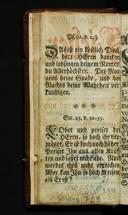 Ps. 92. v. 2. 3.
Das ist ein köstlich Ding,
dem HErrn dancken
und lobsingen deinem Namen
du Allerhöchster. Des Mor-
gens deine Gnade, und des
Nachts deine Wahrheit ver-
kündigen.
Sir. 43. v. 32-35.
Lobet und preiset den
HErrn, so hoch ihr ver-
möget, Er ist doch noch höher
Preiset Ihn aus allen Kräf-
ten und lasset nicht abe. Noch
werdet ihrs nicht erreichen.
Wer kan Ihn so hoch preisen
als Er ist?